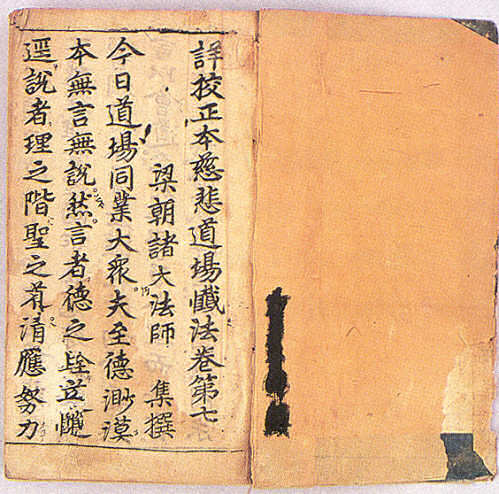 詳挍正本慈悲道場懺法卷第七
梁朝諸大法師 集撰
今日道場同業大衆夫至德渺漠
本無言無說然言者德之詮
逕說者理之階聖之